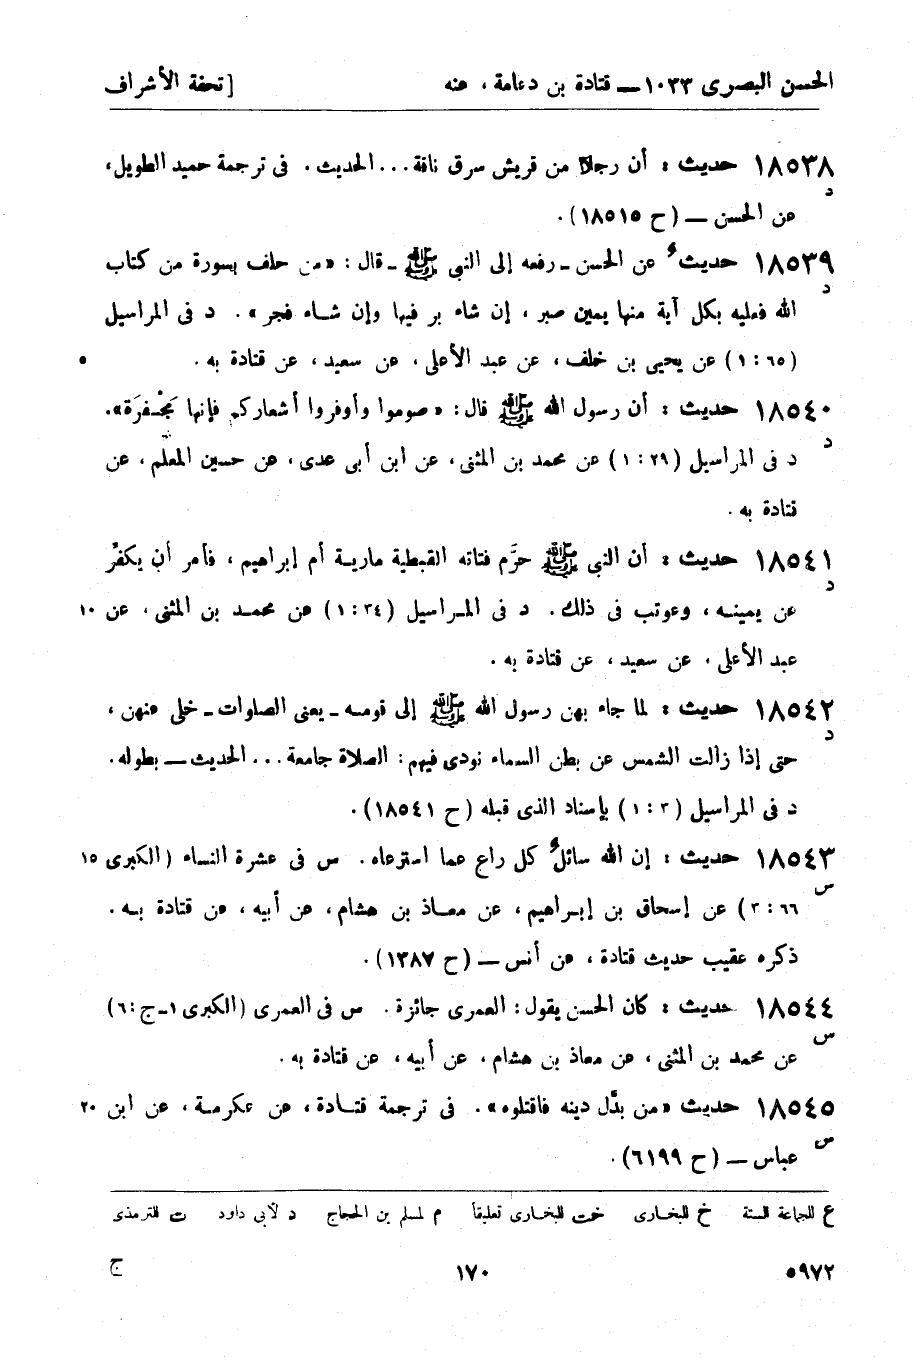 الحسن البصرى ١٠٣٣ — قتادة بن دعامة ، عنه [ تحفة الأشراف
١٨٥٣٨ حديث : أن رجلا من قريش سرق ناقة ... الحديث . فى ترجمة حميد الطويل،
د
عن الحسن — (ح ١٨٥١٥) .
١٨٥٣٩ حديثُ عن الحسن ـ رفعه إلى النبى ﷺ ـ قال : «من حلف بسورة من كتاب
د
الله فعليه بكل آية منها يمين صبر ، إن شاء بر فيها وإن شاء فجر» . د فى المراسيل
(٦٥ : ١) عن يحيى بن خلف ، عن عبد الأعلى ، عن سعيد ، عن قتادة به . ٥
١٨٥٤٠ حديث : أن رسول الله ﷺ قال : «صوموا وأوفروا أشعاركم فإنها مَجْفَرَة».
د
د فى المراسيل (٢٩ : ١) عن محمد بن المثنى ، عن ابن أبى عدى ، عن حسين المعلّم ، عن
قتادة به .
١٨٥٤١ حديث : أن النبى ﷺ حرَّم فتاته القبطية مارية أم إبراهيم ، فأمر أن يكفّر
د
عن يمينه ، وعوتب فى ذلك . د فى المراسيل (٣٤ : ١) عن محمد بن المثنى ، عن ١٠
عبد الأعلى ، عن سعيد ، عن قتادة به .
١٨٥٤٢ حديث : لما جاء بهن رسول الله ﷺ إلى قومه ـ يعنى الصلوات ـ خلى عنهن ،
د
حتى إذا زالت الشمس عن بطن السماء نودى فيهم : الصلاة جامعة ... الحديث — بطوله .
د فى المراسيل (٣ : ١) بإسناد الذى قبله (ح ١٨٥٤١) .
١٨٥٤٣ حديث : إن الله سائلُ كل راع عما استرعاه . س فى عشرة النساء (الكبرى ١٥
س
٦٦ : ٣) عن إسحاق بن إبراهيم ، عن معاذ بن هشام ، عن أبيه ، عن قتادة به .
ذكره عقيب حديث قتادة ، عن أنس — (ح ١٣٨٧) .
١٨٥٤٤ حديث : كان الحسن يقول : العمرى جائزة . س فى العمرى (الكبرى ١ـ ج : ٦)
س
عن محمد بن المثنى ، عن معاذ بن هشام ، عن أبيه ، عن قتادة به .
١٨٥٤٥ حديث «من بدَّل دينه فاقتلوه» . فى ترجمة قتادة ، عن عكرمة ، عن ابن ٢٠
س
عباس — (ح ٦١٩٩) .
ع للجماعة الستة خ للبخارى خت للبخارى تعليقاً م لمسلم بن الحجاج د لأبى داود ت للترمذى
٥٩٧٢ ١٧٠ ج